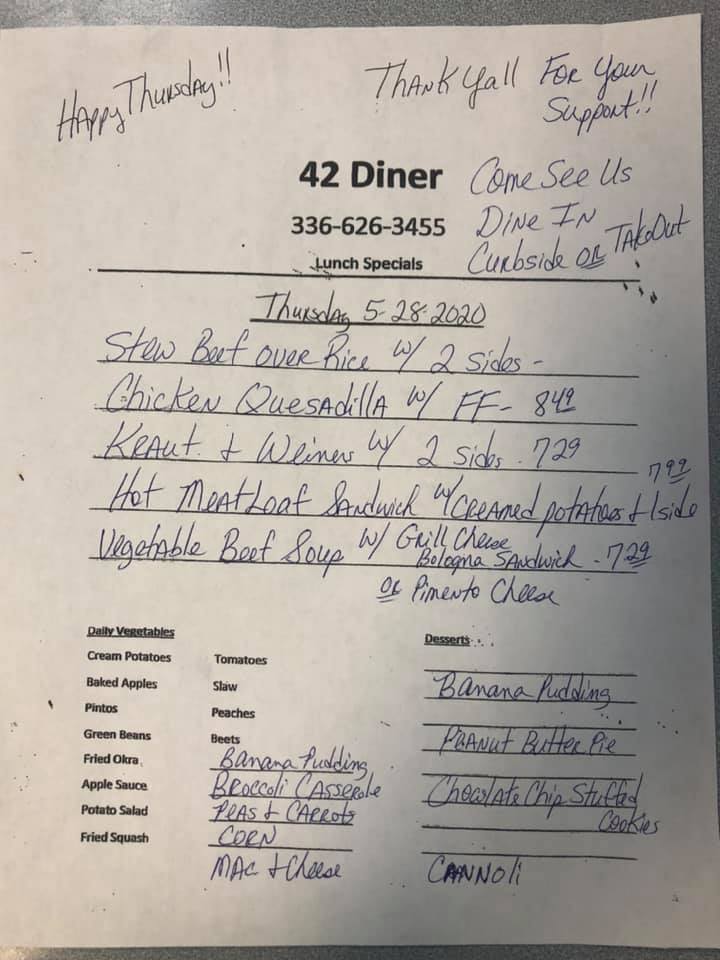 Happy Thursday!!
Thank Yall For Your
Support!!
42 Diner
336-626-3455
Lunch Specials
Come See Us
Dine In
Curbside or TakeOut
Thursday 5-28-2020
Stew Beef over Rice w/ 2 sides -
Chicken Quesadilla w/ FF- 849
Kraut & Weiners w/ 2 sides - 729
799
Hot Meatloaf Sandwich w/ Creamed potatoes & 1 side
Vegetable Beef Soup w/ Grill Cheese
Bologna Sandwich - 729
or Pimento Cheese
Daily Vegetables
Cream Potatoes
Baked Apples
Pintos
Green Beans
Fried Okra
Apple Sauce
Potato Salad
Fried Squash
Tomatoes
Slaw
Peaches
Beets
Banana Pudding
Broccoli Casserole
Peas & Carrots
Corn
Mac & Cheese
Desserts
Banana Pudding
Peanut Butter Pie
Chocolate Chip Stuffed
Cookies
Cannoli